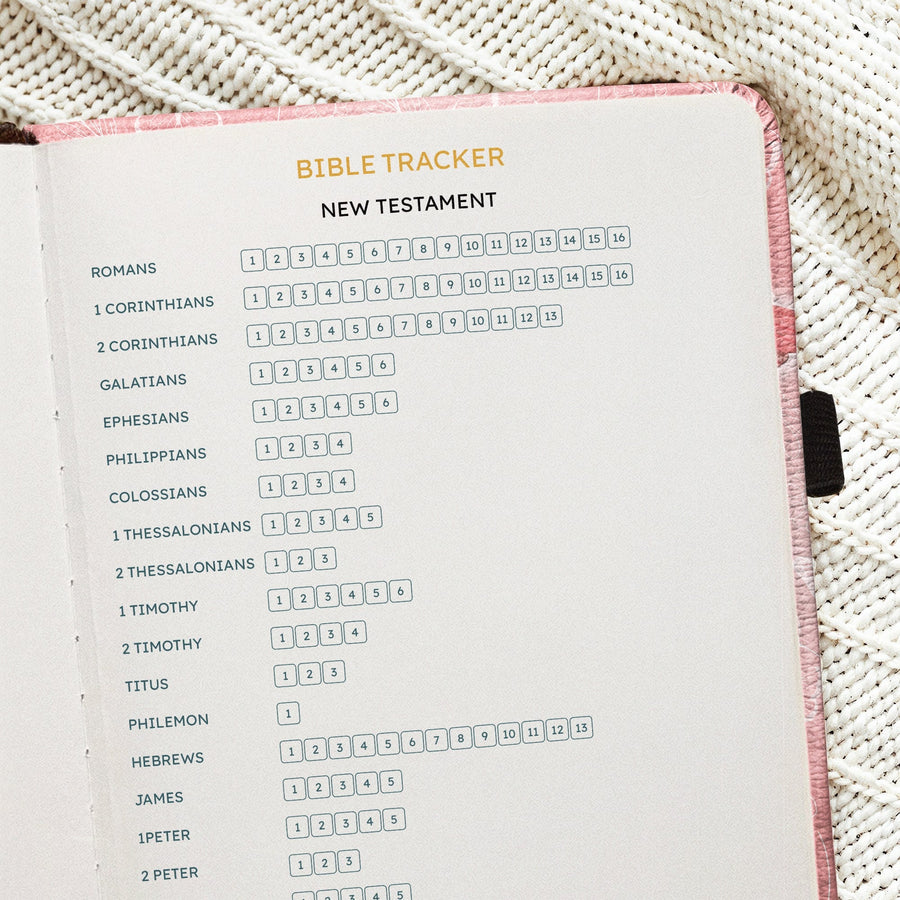 BIBLE TRACKER
NEW TESTAMENT
ROMANS 1 2 3 4 5 6 7 8 9 10 11 12 13 14 15 16
1 CORINTHIANS 1 2 3 4 5 6 7 8 9 10 11 12 13 14 15 16
2 CORINTHIANS 1 2 3 4 5 6 7 8 9 10 11 12 13
GALATIANS 1 2 3 4 5 6
EPHESIANS 1 2 3 4 5 6
PHILIPPIANS 1 2 3 4
COLOSSIANS 1 2 3 4
1 THESSALONIANS 1 2 3 4 5
2 THESSALONIANS 1 2 3
1 TIMOTHY 1 2 3 4 5 6
2 TIMOTHY 1 2 3 4
TITUS 1 2 3
PHILEMON 1
HEBREWS 1 2 3 4 5 6 7 8 9 10 11 12 13
JAMES 1 2 3 4 5
1PETER 1 2 3 4 5
2 PETER 1 2 3
1 2 3 4 5